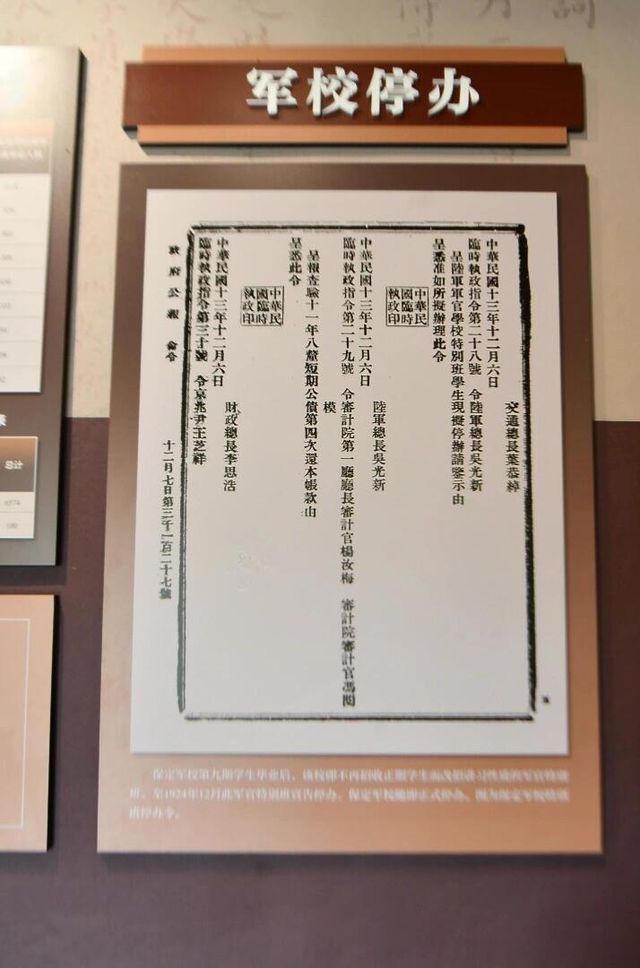 军校停办
交通總長葉恭綽
中華民國十三年十二月六日
臨時執政指令第二十八號 令陸軍總長吳光新
呈陸軍軍官學校特別班學生現擬停辦請鑒示由
呈悉准如所擬辦理此令
中華民國臨時執政印
陸軍總長吳光新
中華民國十三年十二月六日
臨時執政指令第二十九號 令審計院第一廳廳長審計官楊汝梅 審計院審計官馮閱
模
呈報查驗十一年八釐短期公債第四次還本帳款由
呈悉此令
中華民國臨時執政印
財政總長李思浩
中華民國十三年十二月六日
臨時執政指令第三十號 令京兆尹王芝祥
政府公報 命令 十二月七日第三千一百二十七號
保定军校第九期学生毕业后，该校即不再招收正期学生而改招讲习性质的军官特别
班。至1924年12月此军官特别班宣告停办，保定军校随即正式停办。图为保定军校特别
班停办令。
总计